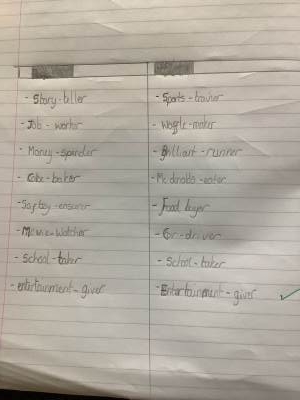 - Story-teller
- Job-worker
- Money-spender
- Cake-baker
- Movie-watcher
- School-taker
- entertainment-giver
- Sports-
- Waffle-maker
- Brilliant-runner
- McDonalds-eater
- Food buyer
- Car-driver
- School-taker
- Entertainment-giver